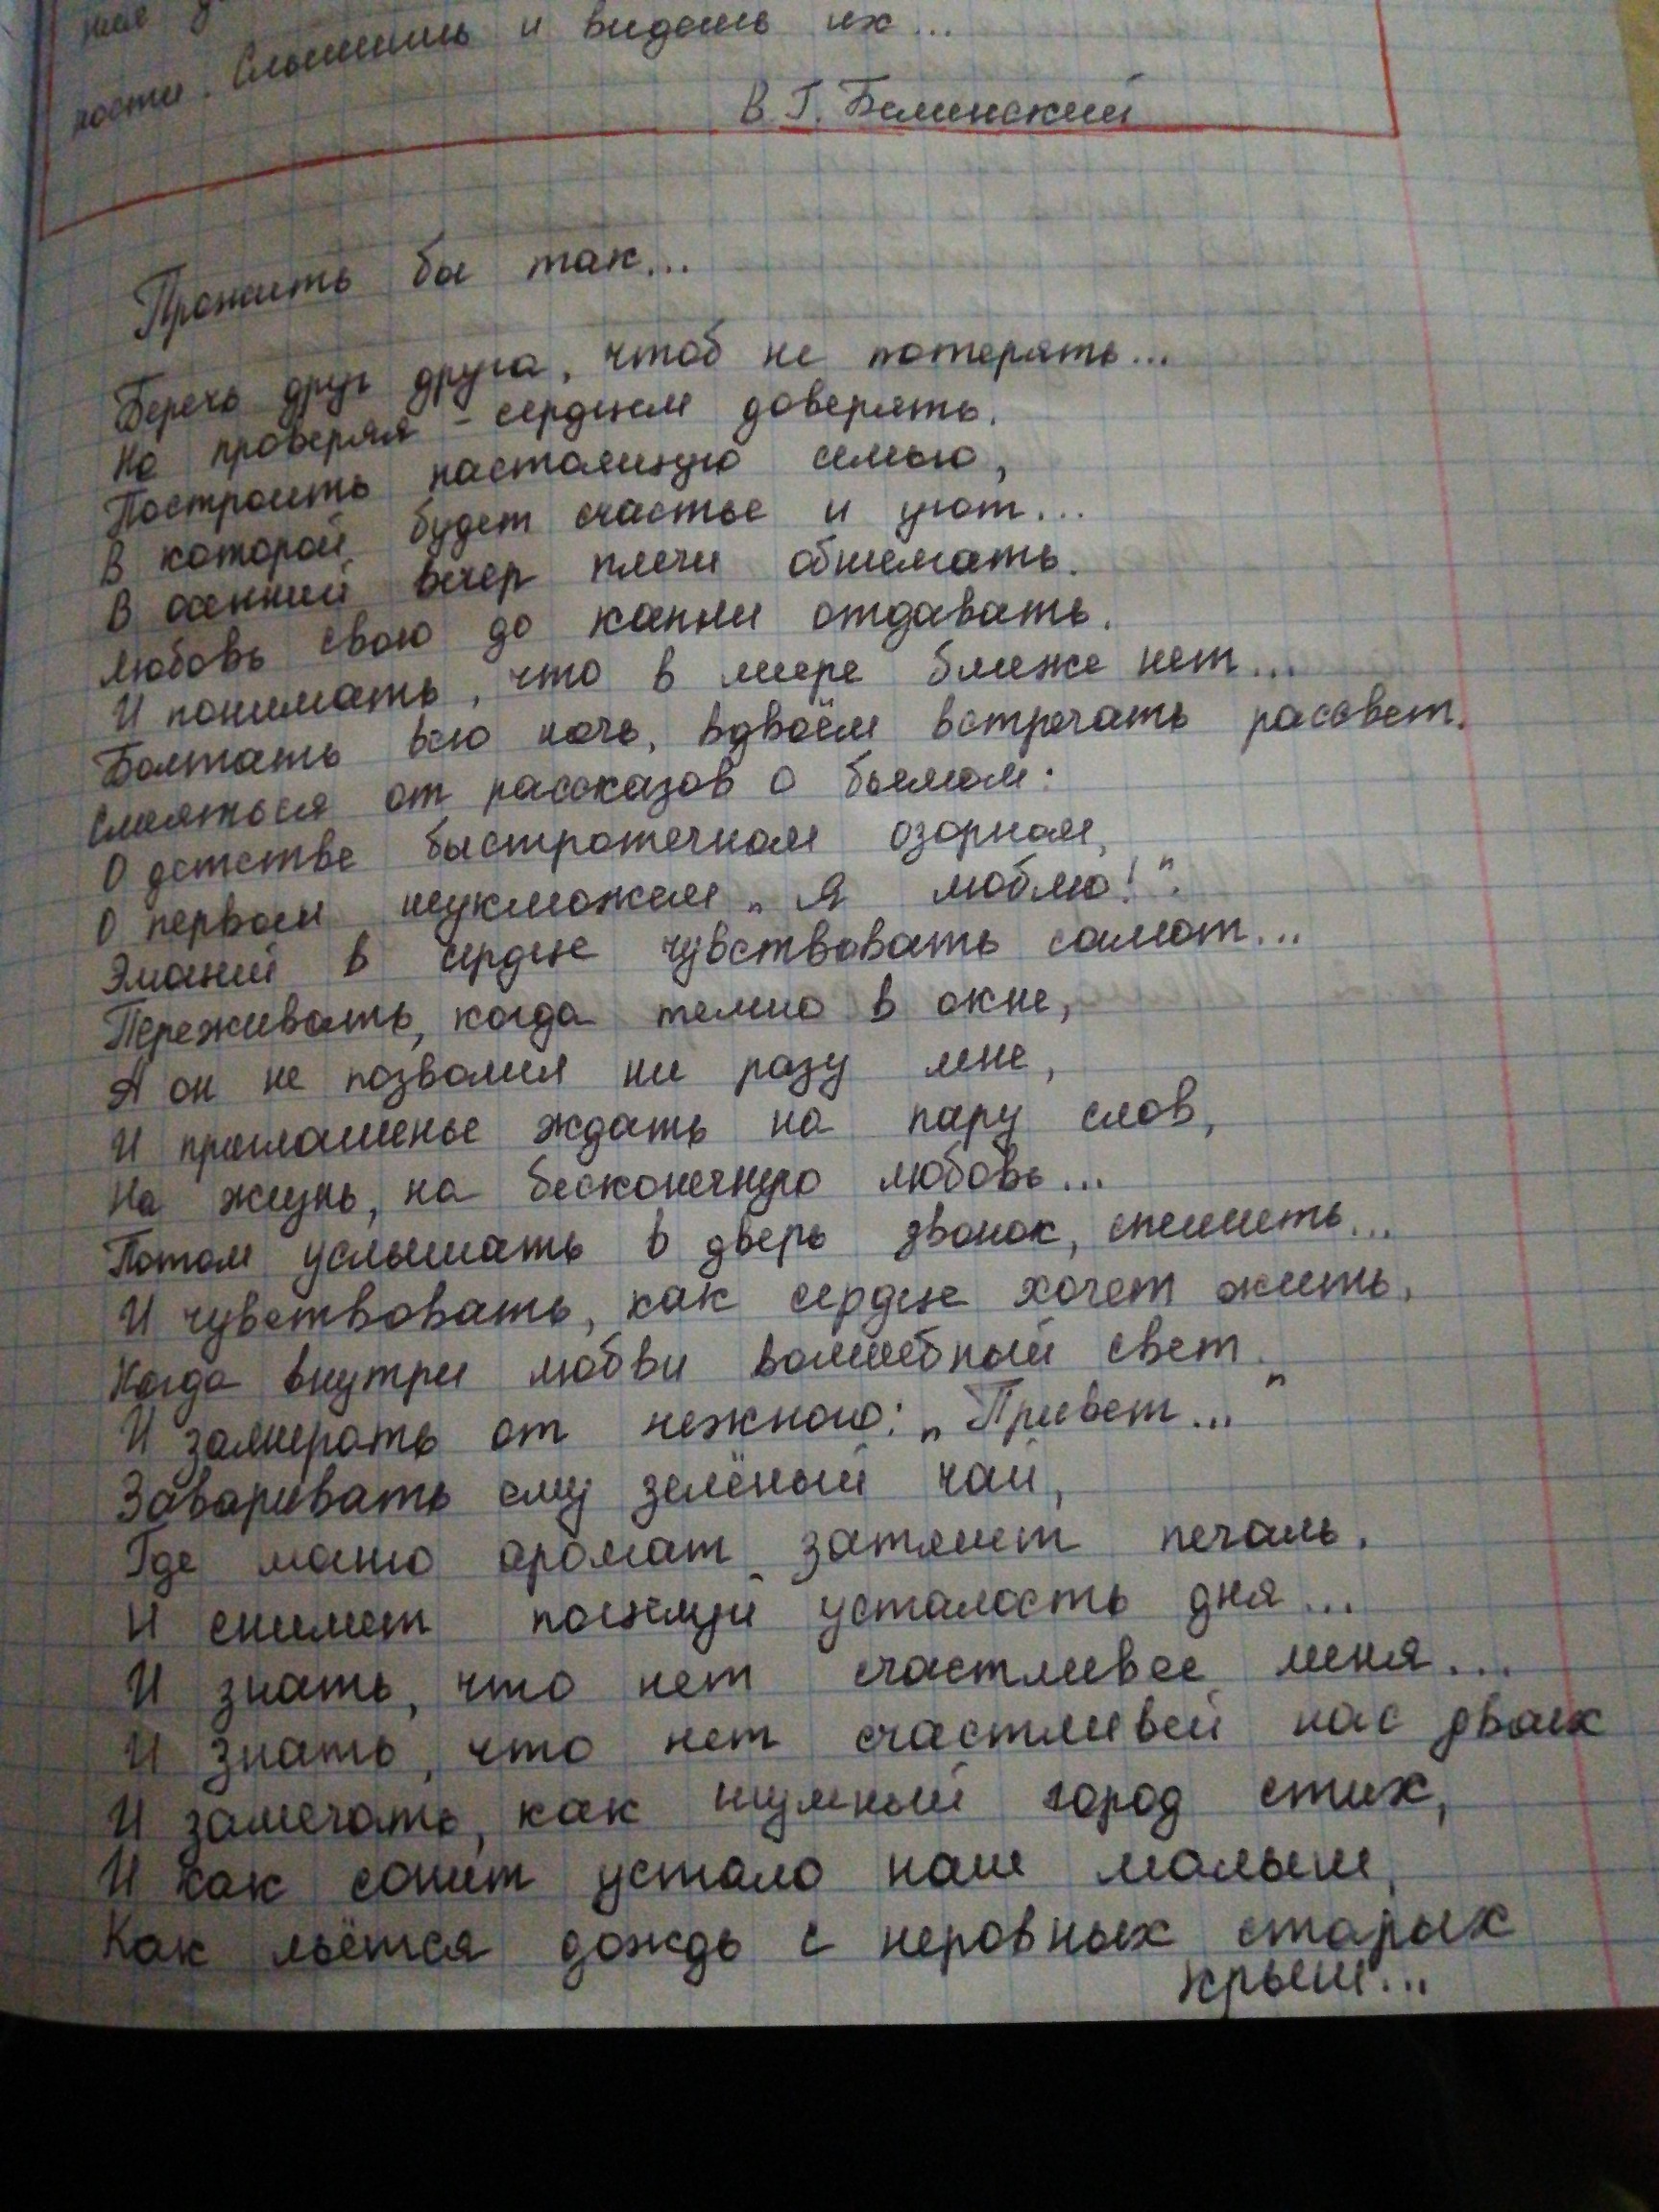 ности. Слышишь и видишь их...
В. Г. Белинский
Прожить бы так...
Беречь друг друга, чтоб не потерять...
Не проверяя - сердцем доверять.
Построить настоящую семью,
В которой будет счастье и уют...
В осенний вечер плечи обнимать.
Любовь свою до капли отдавать.
И понимать, что в мире ближе нет...
Болтать всю ночь, вдвоём встречать рассвет.
Смеяться от рассказов о былом:
О детстве быстротечном озорном,
О первом неуклюжем „Я люблю!".
Эмоций в сердце чувствовать салют...
Переживать, когда темно в окне,
А он не позвонил ни разу мне,
И приглашенье ждать на пару слов,
На жизнь, на бесконечную любовь...
Потом услышать в дверь звонок, спешить...
И чувствовать, как сердце хочет жить,
Когда внутри любви волшебный свет.
И замирать от нежного: „Привет..."
Заваривать ему зелёный чай,
Где мятно аромат затянет печаль.
И снимет поцелуй усталость дня...
И знать, что нет счастливее меня...
И знать, что нет счастливей нас двоих
И замечать, как шумный город стих,
И как сопит устало наш малыш,
Как льётся дождь с неровных старых
крыш...